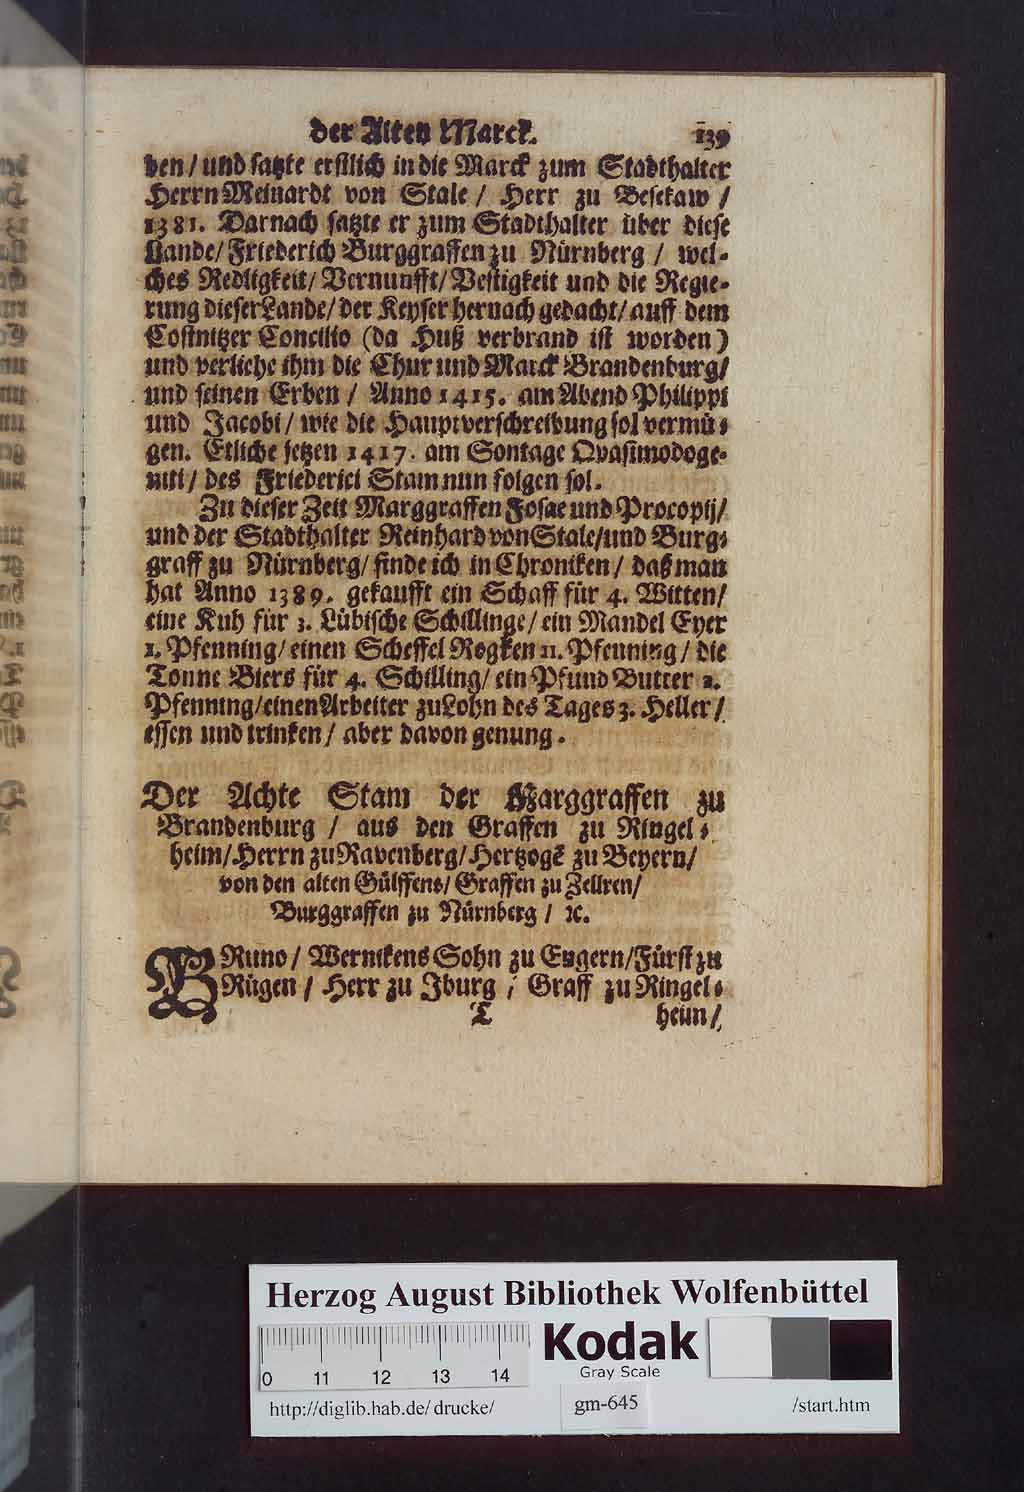 der Alten Marck. 139
ben / und satzte erstlich in die Marck zum Stadthalter
Herrn Meinardt von Stale / Herr zu Besekaw /
1381. Darnach satzte er zum Stadthalter über diese
Lande / Friederich Burggraffen zu Nürnberg / wel-
ches Redligkeit / Vernunfft / Vestigkeit und die Regie-
rung dieser Lande / der Keyser hernach gedacht / auff dem
Costnitzer Concilio (da Huß verbrand ist worden)
und verliehe ihm die Chur und Marck Brandenburg /
und seinen Erben / Anno 1415. am Abend Philippi
und Jacobi / wie die Hauptverschreibung sol vermü-
gen. Etliche setzen 1417. am Sontage Qvasimodoge-
niti / des Friederici Stam nun folgen sol.
Zu dieser Zeit Marggraffen Josae und Procopij /
und der Stadthalter Reinhard von Stale / und Burg-
graff zu Nürnberg / finde ich in Chroniken / daß man
hat Anno 1389. gekaufft ein Schaff für 4. Witten /
eine Kuh für 3. Lübische Schillinge / ein Mandel Eyer
1. Pfenning / einen Scheffel Rogken 11. Pfenning / die
Tonne Biers für 4. Schilling / ein Pfund Butter 2.
Pfenning / einen Arbeiter zu Lohn des Tages 3. Heller /
essen und trinken / aber davon genung.
Der Achte Stam der Marggraffen zu
Brandenburg / aus den Graffen zu Ringel-
heim / Herrn zu Ravenberg / Hertzogē zu Beyern /
von den alten Gülffens / Graffen zu Zellren /
Burggraffen zu Nürnberg / ꝛc.
BRuno / Wernikens Sohn zu Engern / Fürst zu
Rügen / Herr zu Iburg / Graff zu Ringel-
T heim /
Herzog August Bibliothek Wolfenbüttel
0 11 12 13 14
Kodak
Gray Scale
http://diglib.hab.de/drucke/ gm-645 /start.htm